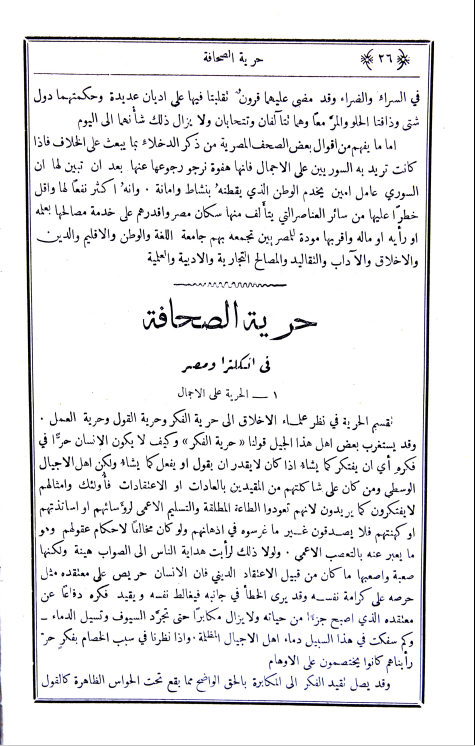 ٢٦
حرية الصحافة
في السراء والضراء وقد مضى عليهما قرون تقلبتا فيها على اديان عديدة وحكمتهما دول
شتى وذاقتا الحلو والمرّ معًا وهما تتآلفان وتتحابان ولا يزال ذلك شأنهما الى اليوم
اما ما يفهم من اقوال بعض الصحف المصرية من ذكر الدخلاء بما يبعث على الخلاف فاذا
كانت تريد به السوريين على الاجمال فانها هفوة نرجو رجوعها عنها بعد ان تبين لها ان
السوري عامل امين يخدم الوطن الذي يقطنهُ بنشاط وامانة ٠ وانهُ اكثر نفعًا لها واقل
خطرًا عليها من سائر العناصر التي يتألف منها سكان مصر واقدرهم على خدمة مصالحها بعلمه
او رأيه او ماله واقربها مودة للمصريين تجمعه بهم جامعة اللغة والوطن والاقليم والدين
والاخلاق والآداب والتقاليد والمصالح التجارية والادبية والعلمية
حرية الصحافة
في انكلترا ومصر
١ — الحرية على الاجمال
تقسم الحرية في نظر علماء الاخلاق الى حرية الفكر وحرية القول وحرية العمل ٠
وقد يستغرب بعض اهل هذا الجيل قولنا « حرية الفكر » وكيف لا يكون الانسان حرًّا في
فكره أي ان يفتكر كما يشاء اذا كان لا يقدر ان يقول او يفعل كما يشاء ولكن اهل الاجيال
الوسطى ومن كان على شاكلتهم من المقيدين بالعادات او الاعتقادات فأولئك وامثالهم
لا يفتكرون كما يريدون لانهم تعودوا الطاعة المطلقة والتسليم الاعمى لرؤسائهم او اساتذتهم
او كهنتهم فلا يصدقون غير ما غرسوه في اذهانهم ولو كان مخالفًا لاحكام عقولهم وهو
ما يعبر عنه بالتعصب الاعمى ٠ ولولا ذلك لرأيت هداية الناس الى الصواب هينة ولكنها
صعبة واصعبها ما كان من قبيل الاعتقاد الديني فان الانسان حريص على معتقده مثل
حرصه على كرامة نفسه وقد يرى الخطأ في جانبه فيغالط نفسه ويقيد فكره دفاعًا عن
معتقده الذي اصبح جزءًا من حياته ولا يزال مكابرًا حتى تجرَّد السيوف وتسيل الدماء —
وكم سفكت في هذا السبيل دماء اهل الاجيال المظلمة ٠ واذا نظرنا في سبب الخصام بفكر حرّ
رأيناهم كانوا يختصمون على الاوهام
وقد يصل تقيد الفكر الى المكابرة بالحق الواضح مما يقع تحت الحواس الظاهرة كالقول